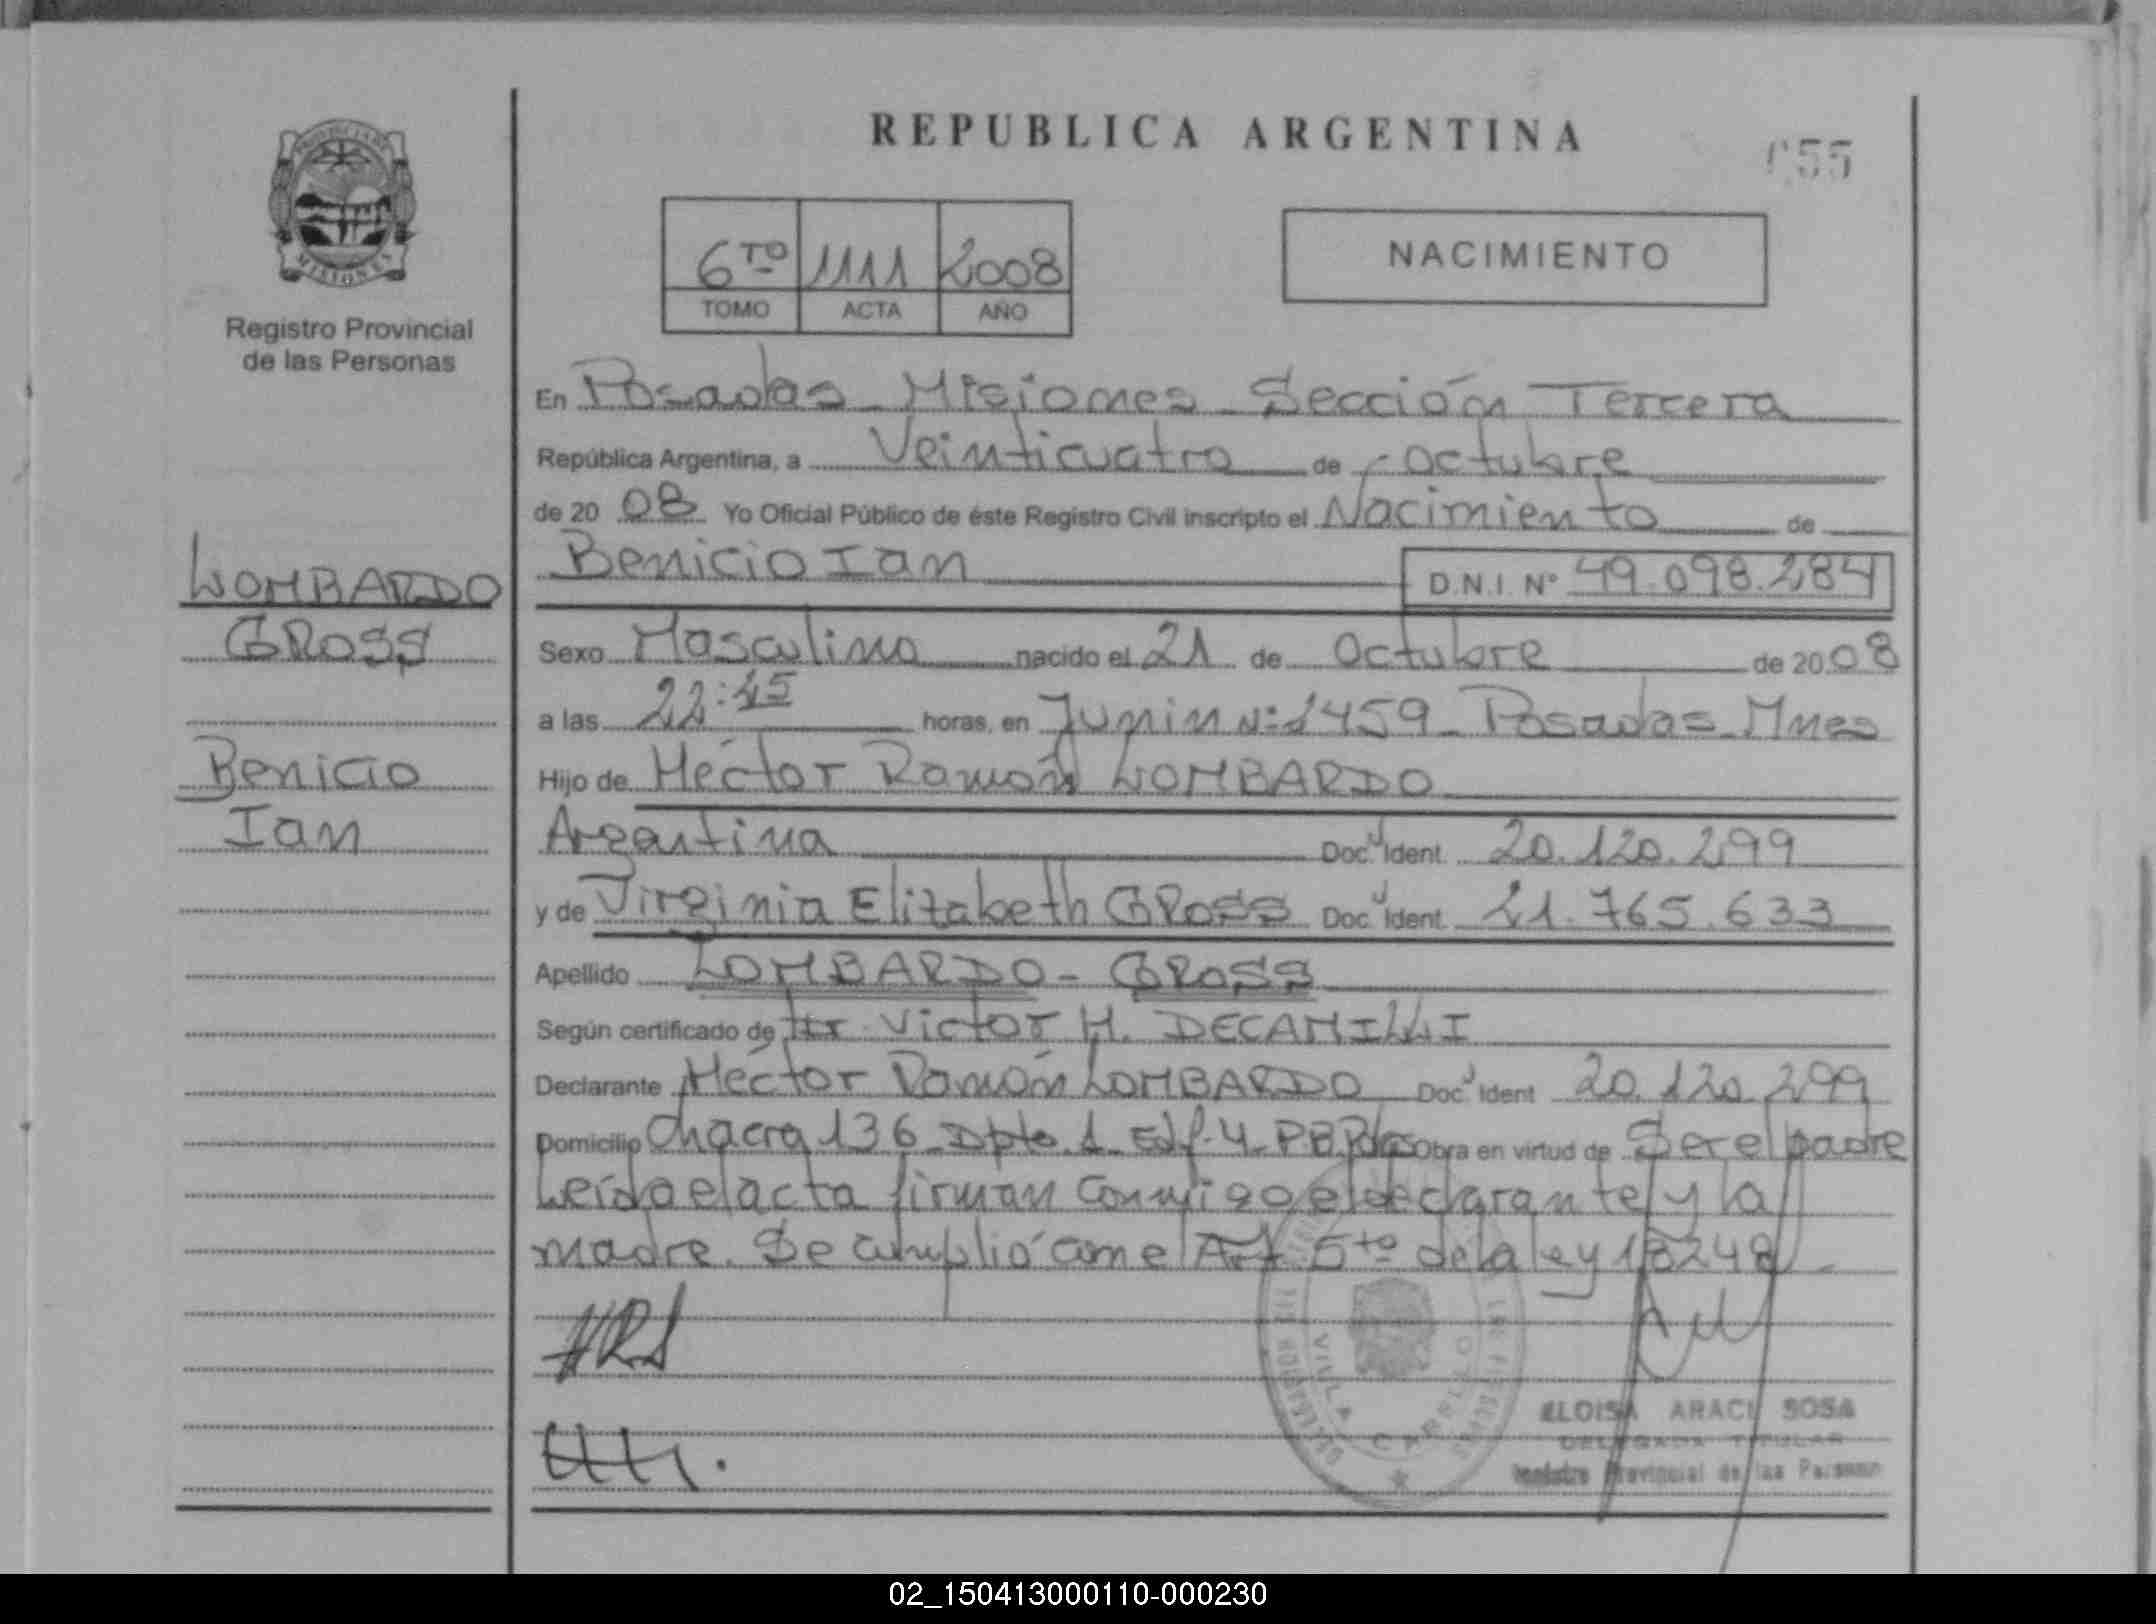 REPUBLICA ARGENTINA
055
PROVINCIA DE
MISIONES
Registro Provincial
de las Personas
6TO 1111 2008
TOMO ACTA AÑO
NACIMIENTO
En Posadas Misiones Sección Tercera
República Argentina, a Veinticuatro de octubre
de 20 08 Yo Oficial Público de éste Registro Civil inscripto el Nacimiento de
Benicio Ian D.N.I. Nº 49.098.284
LOMBARDO
GROSS
Benicio
Ian
Sexo Masculino nacido el 21 de Octubre de 20 08
a las 22:45 horas, en Junin Nº 2459 Posadas Mnes
Hijo de Héctor Ramón LOMBARDO
Argentina Doc. Ident. 20.120.299
y de Virginia Elizabeth GROSS Doc. Ident. 21.765.633
Apellido LOMBARDO - GROSS
Según certificado de Victor H. DECAMILLI
Declarante Héctor Ramón LOMBARDO Doc. Ident 20.120.299
Domicilio Chacra 136 Dpto. 1 Edf. 4 P.B. Pdas Obra en virtud de Ser el padre
Leída el acta firman conmigo el declarante y la
madre. Se cumplió con el Art 5to de la ley 18248
HRL
VILLA CABELLO
ELOISA ARACI SOSA
DELEGADA TITULAR
Registro Provincial de las Personas
02_150413000110-000230